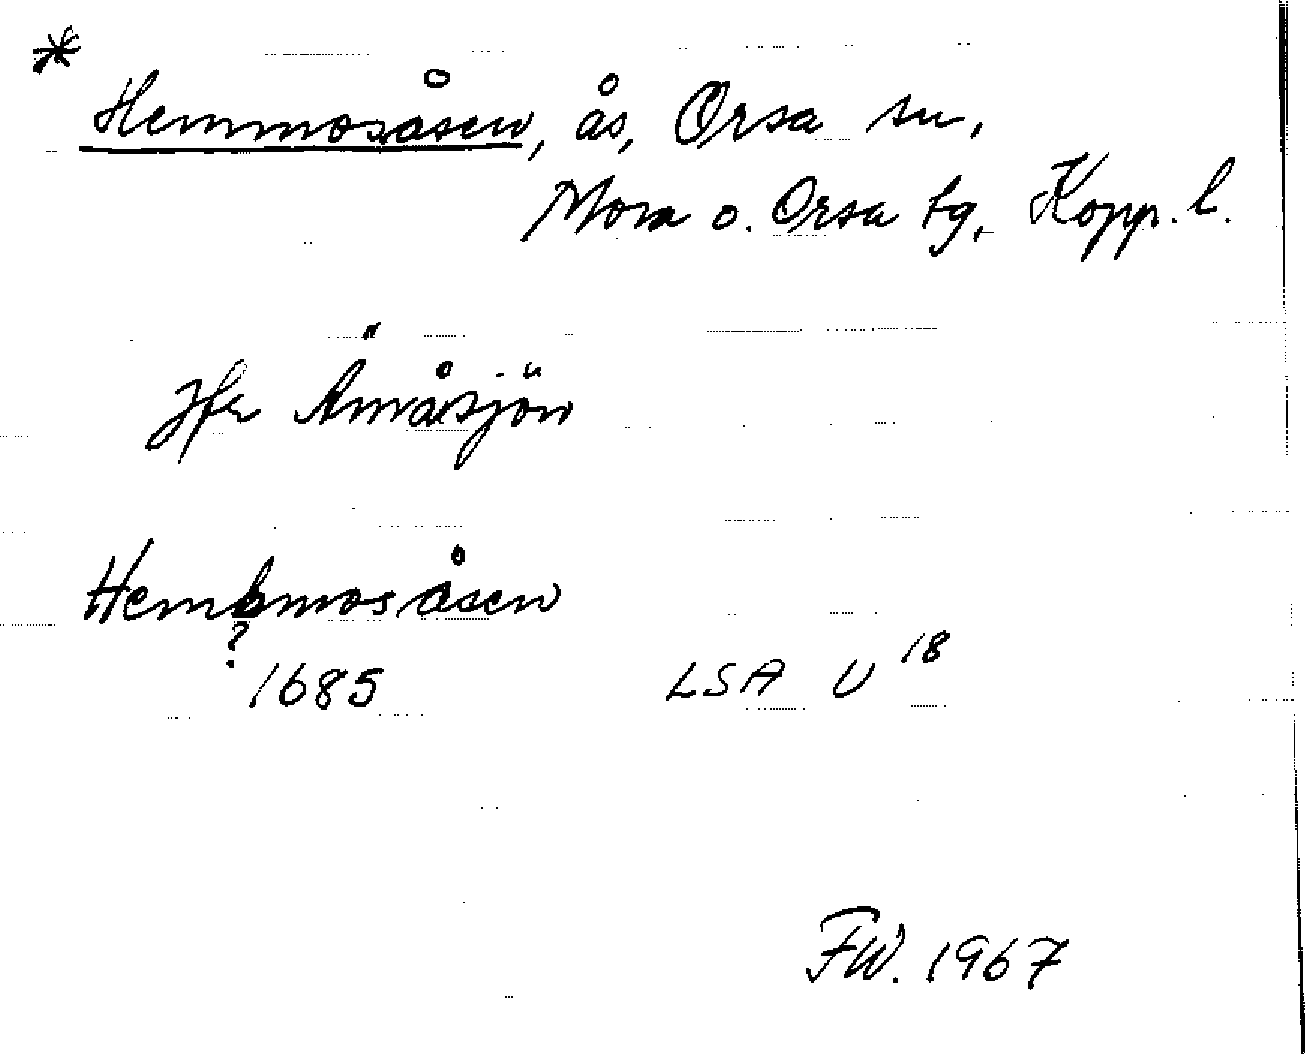 *
Hemmosåsen, ås, Orsa sn,
Mora o. Orsa tg, Kopp. l.
Jfr Ämåsjön
Hembmosåsen
?
1685 LSA U 18
FW. 1967